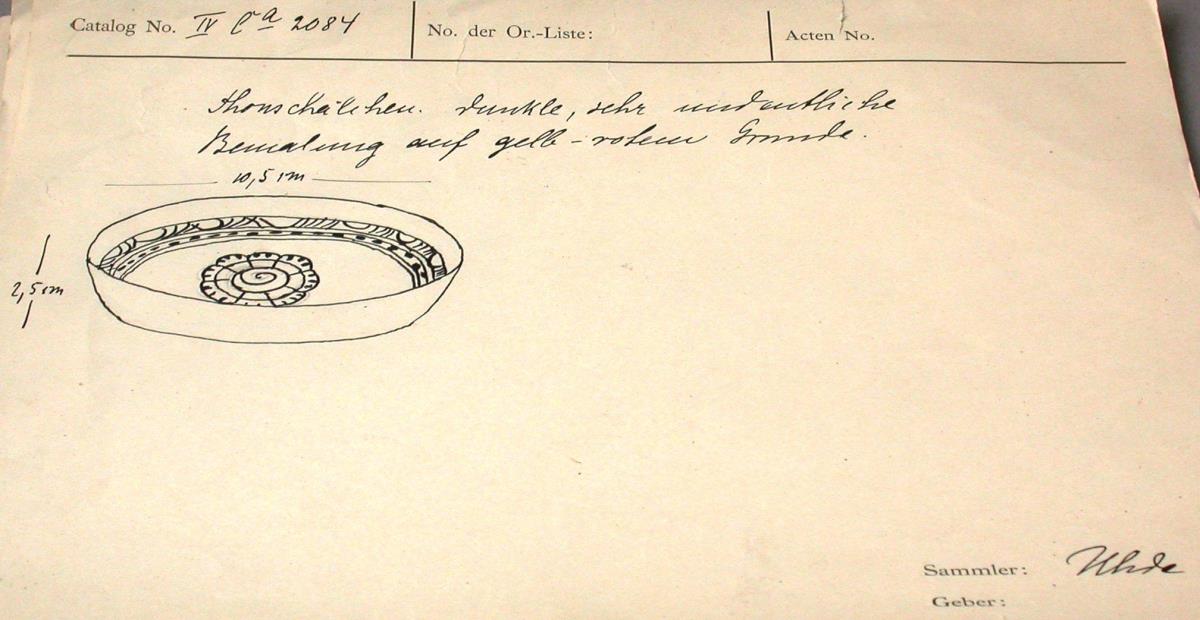 Catalog No. IV Ca 2084 No. der Or.-Liste: Acten No.
Thonschälchen. dunkle, sehr undeutliche
Bemalung auf gelb-rotem Grunde.
10,5 cm
2,5 cm
Sammler: Uhde
Geber: